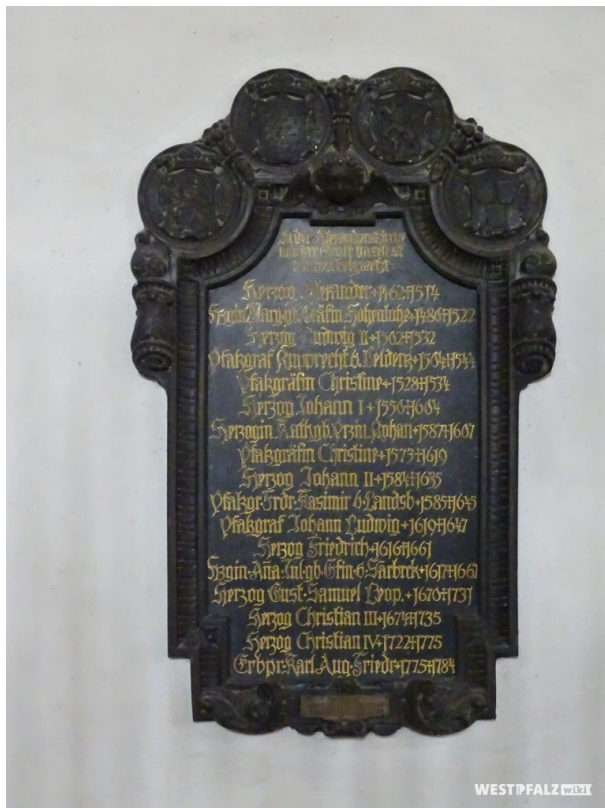 In der Alexanderskirche
Herzog Alexander *1462†1514
Hzgin Marg. gb. Gräfin Hohenlohe *1480†1522
Herzog Ludwig II *1502†1532
Pfalzgraf Rupprecht v. Veldenz *1504†1544
Pfalzgräfin Christine *1528†1534
Herzog Johann I *1550†1604
Herzogin Kath. gb. Przin. *1587†1607
Pfalzgräfin Christine *1573†1619
Herzog Johann II *1584†1635
Pfalzgr. Frdr. Kasimir v. Landsb *1585†1645
Pfalzgraf Johann Ludwig *1619†1647
Herzog Friedrich *1616†1661
Hzgin. Aña. Jul. gb. Gfin. v. Sarbrck *1617†1667
Herzog Gust. Samuel Leop. *1670†1731
Herzog Christian III *1674†1735
Herzog Christian IV *1722†1775
Erbpr. Karl Aug. Friedr *1775†1784
WESTPFALZ wiki